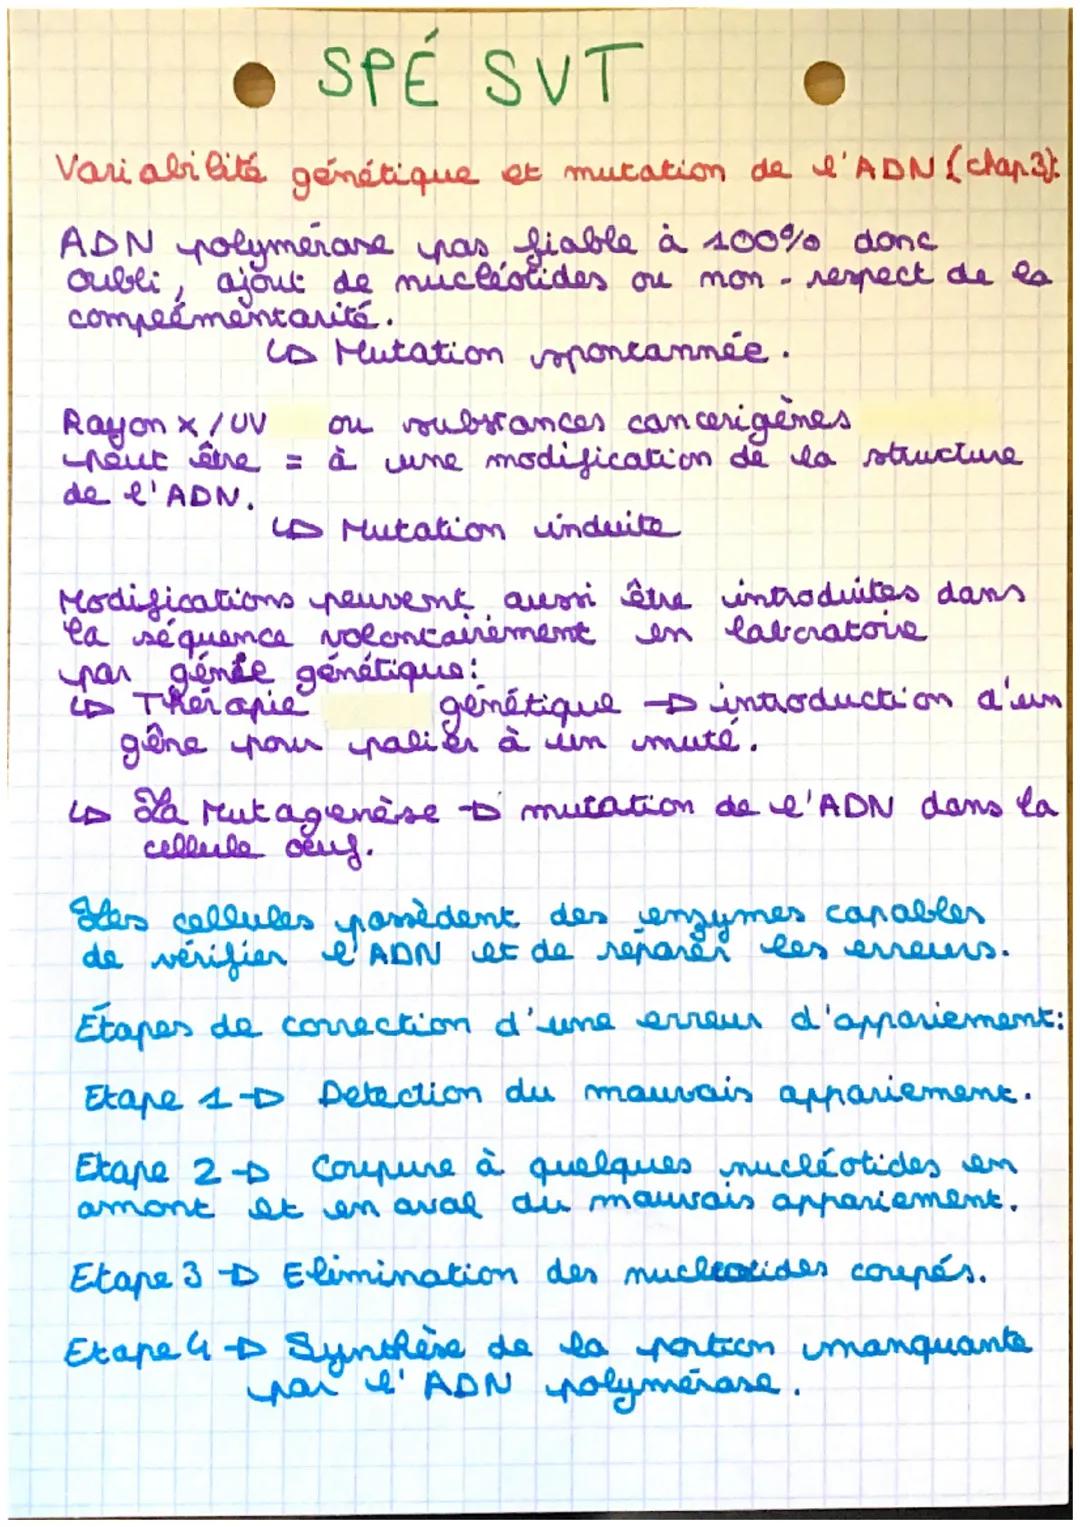 SPÉ SVT
Variabilité génétique et mutation de l'ADN (chap3):
ADN polymérase pas fiable à 100% donc
oubli, ajout de nucléotides ou non-respect de la
complémentarité.
↳ Mutation spontannée.
Rayon X/UV ou substances cancerigènes
peut être = à une modification de la structure
de l'ADN.
↳ Mutation induite
Modifications peuvent aussi être introduites dans
la séquence volontairement en laboratoire
par génie génétique:
↳ Thérapie génétique → introduction d'un
gêne pour palier à un muté.
↳ La Mutagenèse → mutation de l'ADN dans la
cellule oeuf.
Les cellules possèdent des enzymes capables
de vérifier l'ADN et de réparer les erreurs.
Étapes de correction d'une erreur d'appariement:
Etape 1 → Detection du mauvais appariement.
Etape 2 → Coupure à quelques nucléotides en
amont et en aval du mauvais appariement.
Etape 3 → Elimination des nucleotides coupés.
Etape 4 → Synthèse de la portion manquante
par l'ADN polymérase.